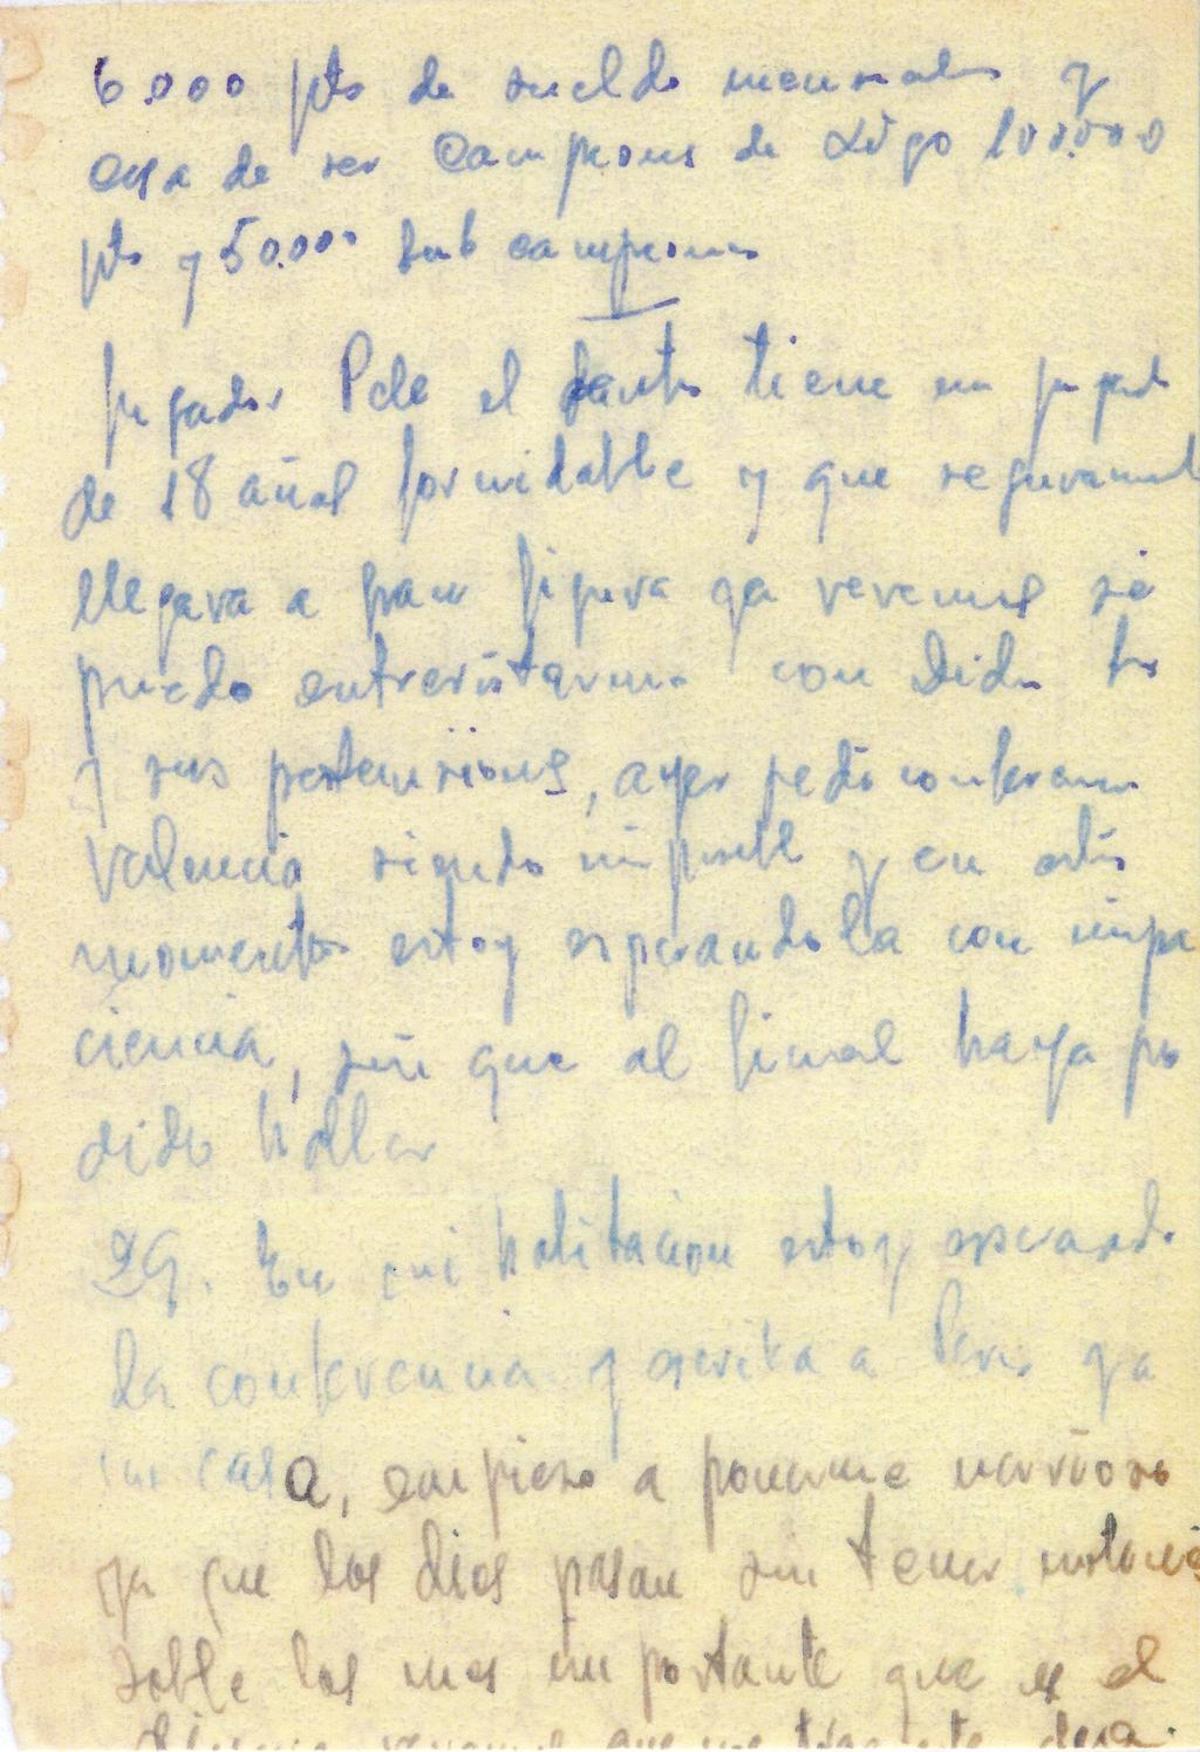 6.000 pts de sueldo mensuales y
casa de ser Campeons de Ligo 100.000
pts y 50.000 sub campeons
Jugador Pele el Santos tiene un jugad
de 18 años formidable y que seguramente
llegara a gran figura ya veremos si
puedo entrevistarme con Didi
y sus pretensiones, ayer pedi conferencia
Valencia siendo imposible y en estos
momentos estoy esperandola con impa
ciencia, sin que al final haya po
dido hablar
29. En mi habitacion estoy esperando
la conferencia y escrita a Paris ya
mi casa, empiezo a ponerme nervioso
ya que los dias pasan sin tener noticias
sobre los mas importante que es el
dinero veremos que me trae este dia.